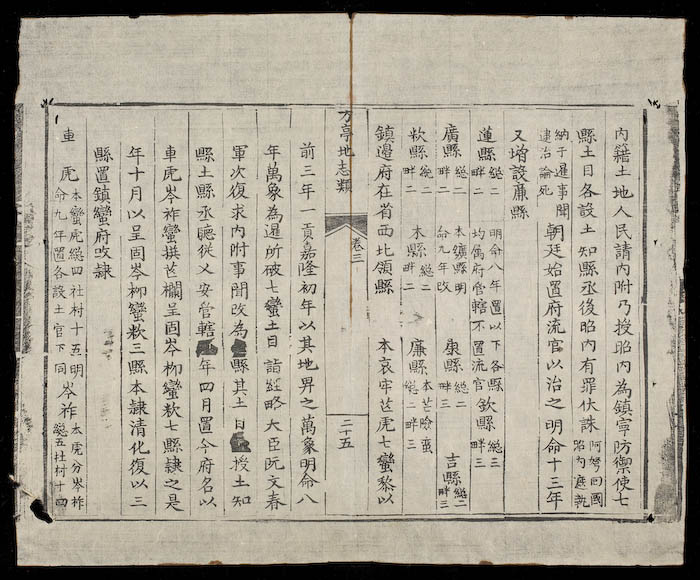 內籍土地人民請內附乃授昭內為鎮寧防禦使七
縣土目各設土知縣丞後昭內有罪伏誅 阿弩回國昭內遮執
納于暹事聞逮治論死 朝廷始置府流官以治之明命十三年
又增設廉縣
蓮縣 總二畔二 明命八年置以下各縣均属府管轄不置流官 欽縣 總三畔三
廣縣 總二畔二 本鑛縣明命九年改 康縣 總二畔三 吉縣 總二畔三
欵縣 總二畔二 本縣 總二畔二 廉縣 本芒險蛮總二畔三
鎮邊府在省西北領縣 本哀牢芒虎七蠻黎以
方亭地志類 卷三 二十五
前三年一貢嘉隆初年以其地畀之萬象明命八
年萬象為暹所破七蠻土目詣經略大臣阮文春
軍次復求內附事聞改為縣其土目授土知
縣土縣丞聽從乂安管轄年四月置今府名以
車虎岑祚蠻拱芒欄呈固岑柳蠻欵七縣隸之是
年十月以呈固岑柳蠻欵三縣本隸清化復以三
縣置鎮蠻府改隸
車虎 本蠻虎總四社村十五明命九年置各設土官下同 岑祚 本虎分岑祚總五社村十四